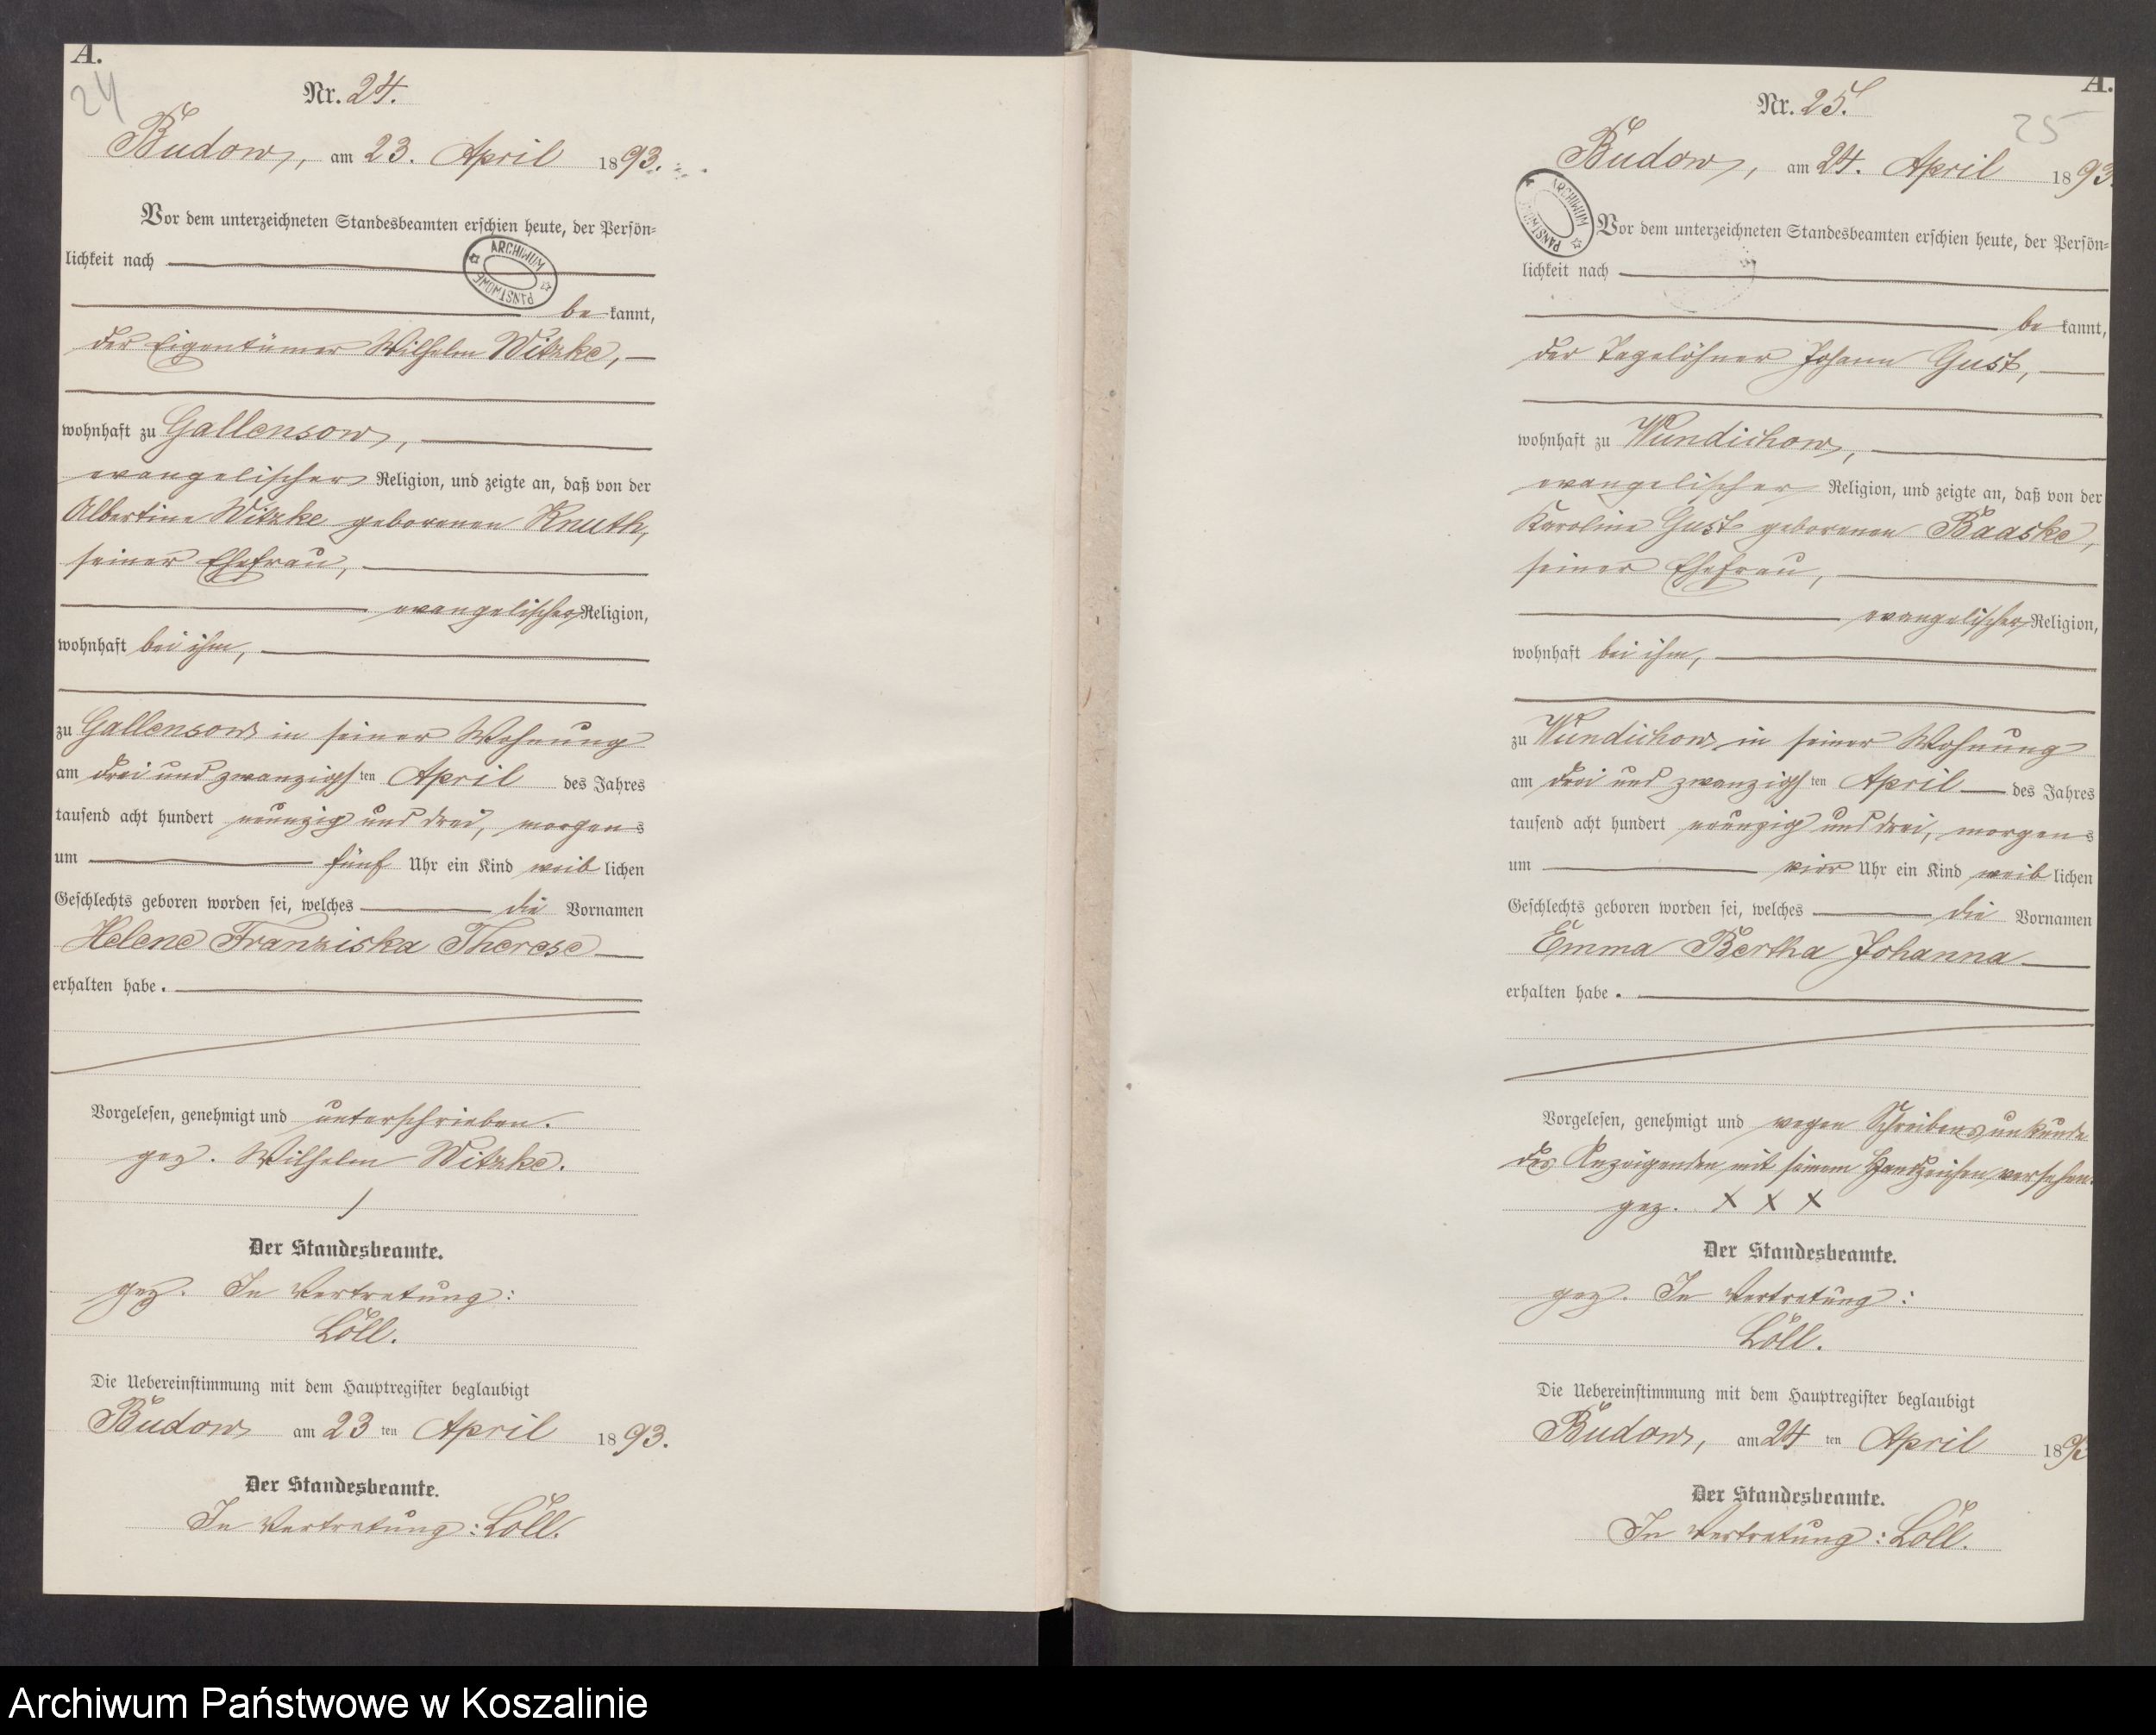 A.
24
Nr. 24.
Budow, am 23. April 1893.
Vor dem unterzeichneten Standesbeamten erschien heute, der Persön-
lichkeit nach
ARCHIWUM PAŃSTWOWE
bekannt,
der Eigentümer Wilhelm Witzke,
wohnhaft zu Gallensow,
evangelischer Religion, und zeigte an, daß von der
Albertine Witzke geborenen Knuth,
seiner Ehefrau,
evangelischer Religion,
wohnhaft bei ihm,
zu Gallensow in seiner Wohnung
am drei und zwanzigsten April des Jahres
tausend acht hundert neunzig und drei, morgens
um fünf Uhr ein Kind weiblichen
Geschlechts geboren worden sei, welches die Vornamen
Helene Franziska Therese
erhalten habe.
Vorgelesen, genehmigt und unterschrieben.
gez. Wilhelm Witzke.
Der Standesbeamte.
gez. In Vertretung:
Löll.
Die Uebereinstimmung mit dem Hauptregister beglaubigt
Budow am 23ten April 1893.
Der Standesbeamte.
In Vertretung: Löll.
A.
25
Nr. 25.
Budow, am 24. April 1893.
ARCHIWUM PAŃSTWOWE
Vor dem unterzeichneten Standesbeamten erschien heute, der Persön-
lichkeit nach
bekannt,
der Tagelöhner Johann Gust,
wohnhaft zu Wundichow,
evangelischer Religion, und zeigte an, daß von der
Karoline Gust geborenen Baaske,
seiner Ehefrau,
evangelischer Religion,
wohnhaft bei ihm,
zu Wundichow in seiner Wohnung
am drei und zwanzigsten April des Jahres
tausend acht hundert neunzig und drei, morgens
um vier Uhr ein Kind weiblichen
Geschlechts geboren worden sei, welches die Vornamen
Emma Bertha Johanna
erhalten habe.
Vorgelesen, genehmigt und wegen Schreibensunkunde
des Anzeigenden mit seinem Handzeichen versehen.
gez. X X X
Der Standesbeamte.
gez. In Vertretung:
Löll.
Die Uebereinstimmung mit dem Hauptregister beglaubigt
Budow, am 24ten April 1893
Der Standesbeamte.
In Vertretung: Löll.
Archiwum Państwowe w Koszalinie